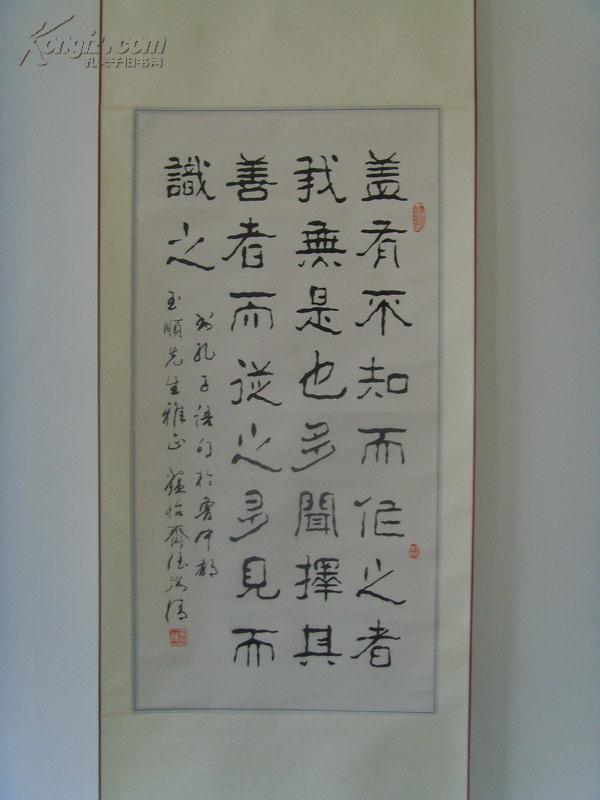 盖有不知而作之者
我無是也多聞擇其
善者而從之多見而
識之
孔子語句於魯中都
玉順先生雅正 蘊怡齋
Kongfz.com
孔夫子旧书网